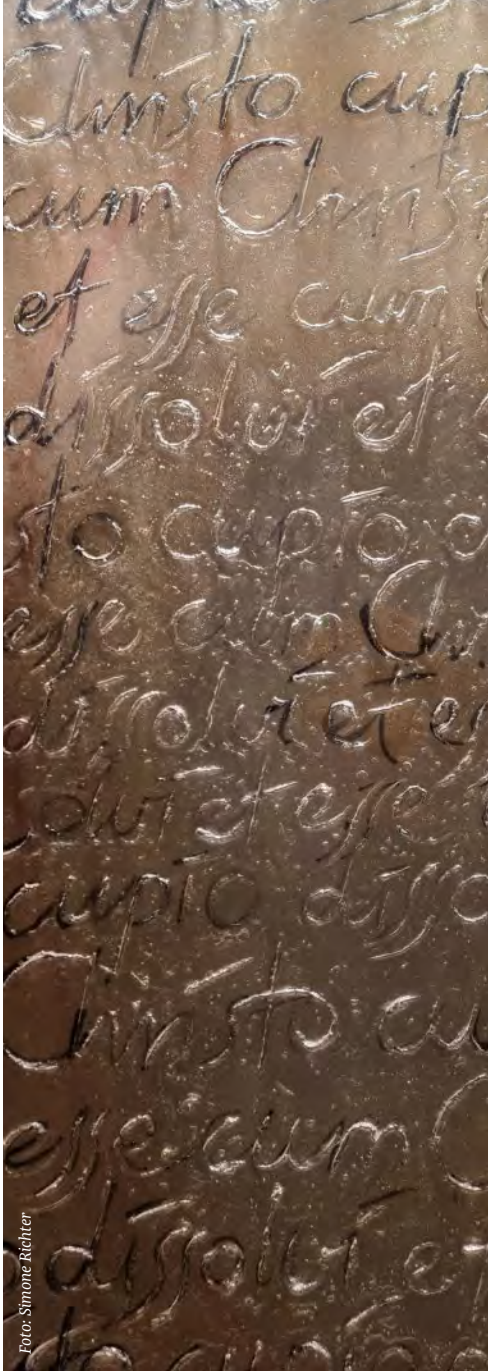 cupio
Christo cup
cum Christ
et esse cum C
dissolvi et e
sto cupio d
esse cum Chr
dissolvi et es
solvi et esse c
cupio disso
Christo cu
esse cum C
dissolvi et
sto cupio d
Foto: Simone Richter